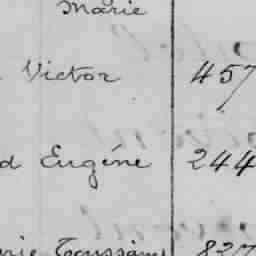 Marie
Victor 457
d Eugéne 244
rie Toussaint 837